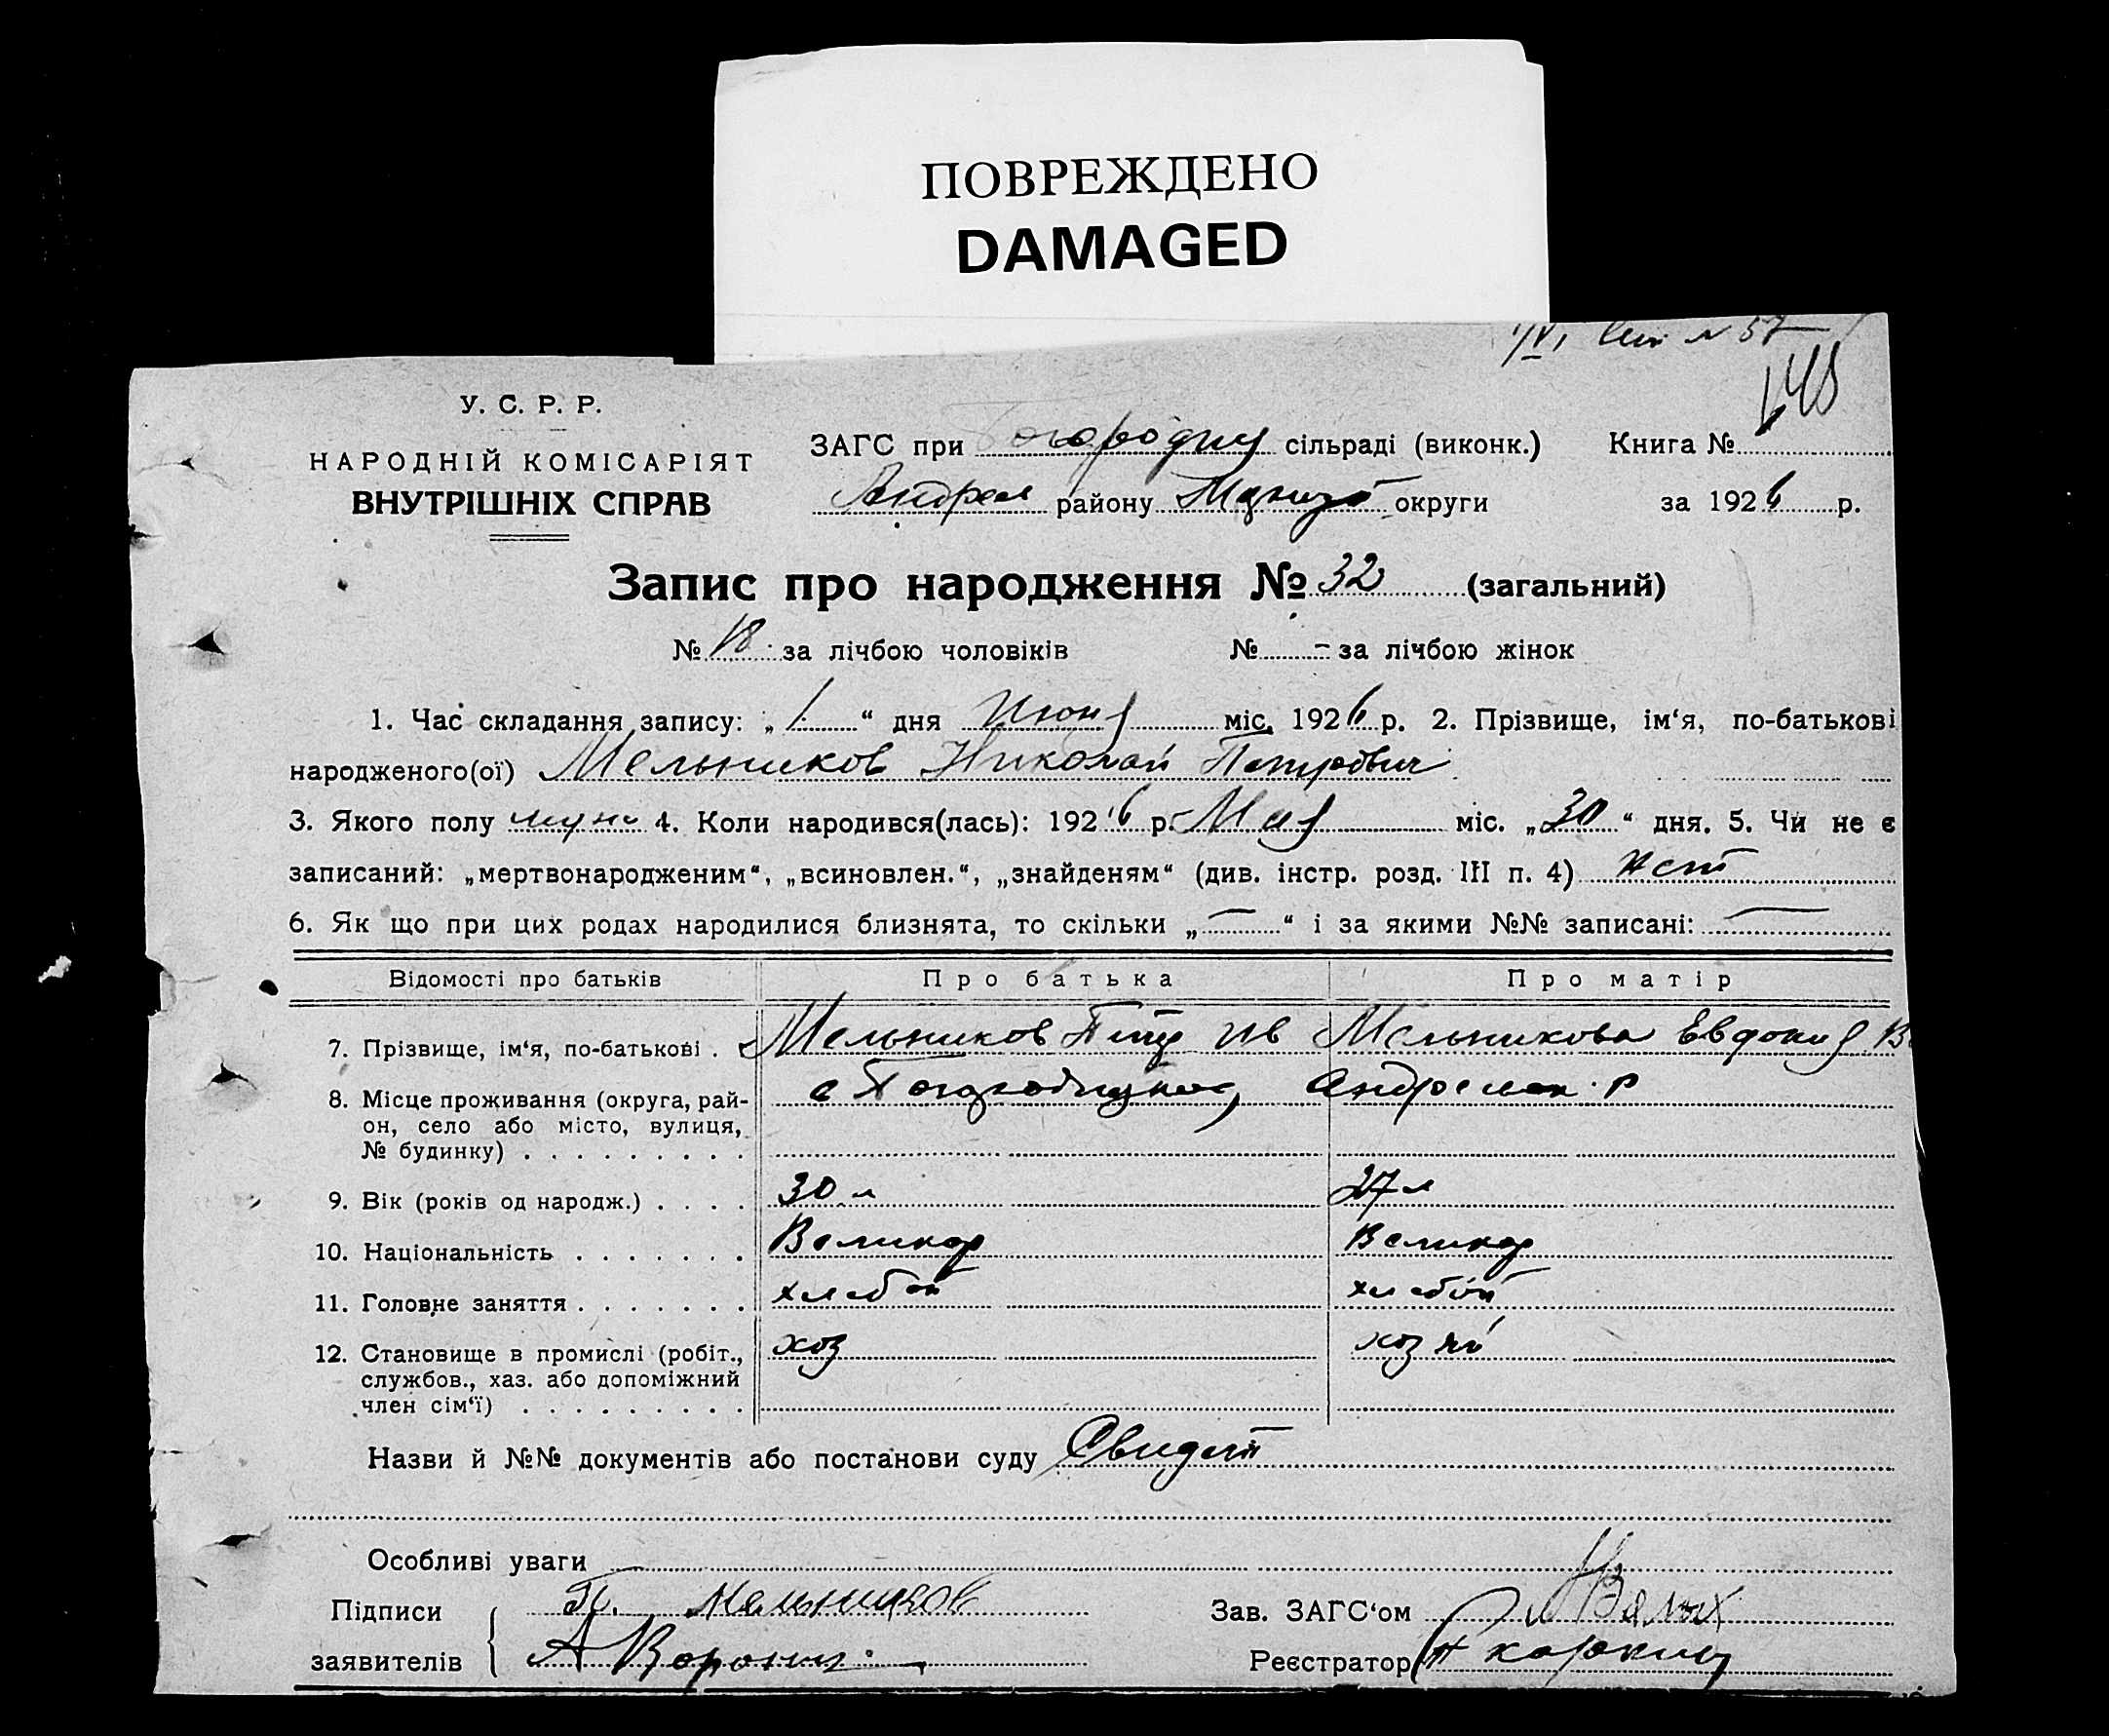 ПОВРЕЖДЕНО
DAMAGED
У. С. Р. Р.
НАРОДНІЙ КОМІСАРІЯТ
ВНУТРІШНІХ СПРАВ
ЗАГС при сільраді (виконк.) Книга №
Андреев району округи за 1926 р.
Запис про народження № 32 (загальний)
№ 18 за лічбою чоловіків № – за лічбою жінок
1. Час складання запису: „1“ дня Июня міс. 1926 р. 2. Прізвище, ім‘я, по-батькові
народженого(ої) Мельников Николай Петрович
3. Якого полу муж 4. Коли народився(лась): 1926 р. Мая міс. „30“ дня. 5. Чи не є
записаний: „мертвонародженим“, „всиновлен.“, „знайденям“ (див. інстр. розд. III п. 4) нет
6. Як що при цих родах народилися близнята, то скільки „—“ і за якими №№ записані: —
Відомості про батьків Про батька Про матір
7. Прізвище, ім‘я, по-батькові . Мельников Петр Ив Мельникова Евдокия В
8. Місце проживання (округа, рай-
он, село або місто, вулиця,
№ будинку) . . . . . . . . .
9. Вік (років од народж.) . . . . 30 л 27 л
10. Національність . . . . . . . Великор Великор
11. Головне заняття . . . . . . . хлебоп хлебоп
12. Становище в промислі (робіт.,
службов., хаз. або допоміжний
член сім‘ї) . . . . . . . . . хоз
Назви й №№ документів або постанови суду Свидет
Особливі уваги
Підписи П. Мельников Зав. ЗАГС‘ом
заявителів А Воронин Реєстратор